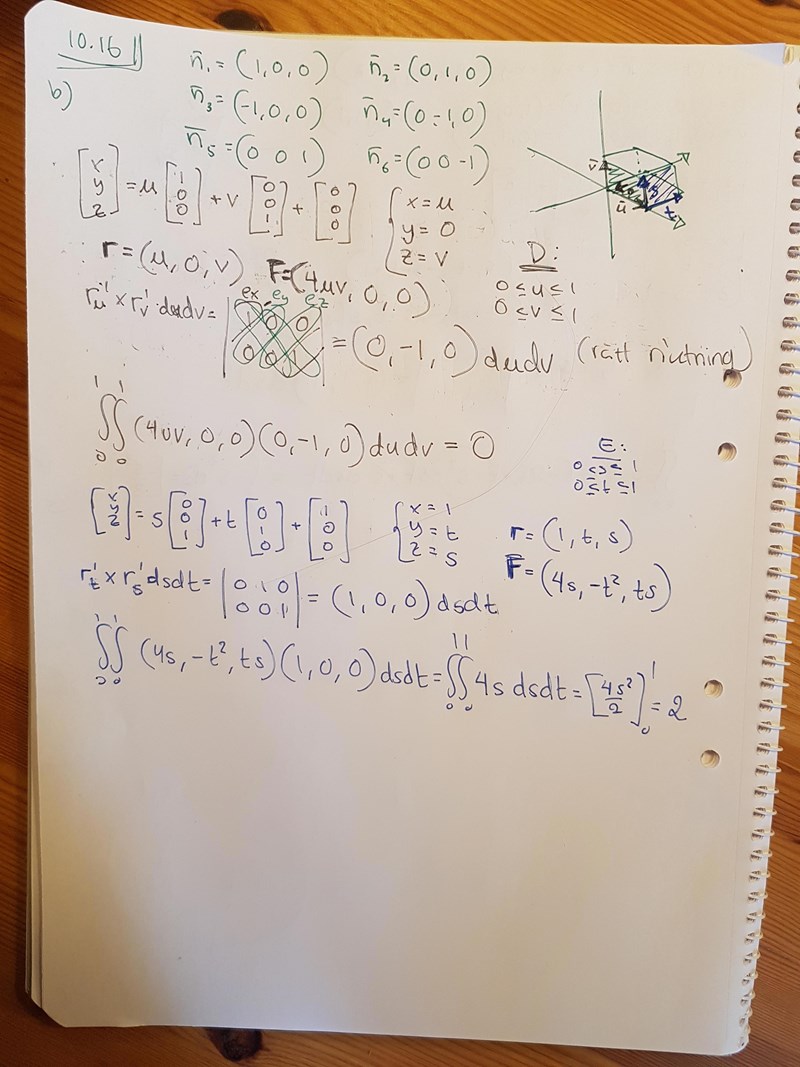 10.16
b)
n̄₁ = (1, 0, 0) n̄₂ = (0, 1, 0)
n̄₃ = (-1, 0, 0) n̄₄ = (0 -1, 0)
n̄₅ = (0 0 1) n̄₆ = (0 0 -1)
[x y z] = u [1 0 0] + v [0 0 1] + [0 0 0] { x = u
y = 0
z = v
v̄ ū s t
r = (u, 0, v) F = (4uv, 0, 0)
D:
0 ≤ u ≤ 1
0 ≤ v ≤ 1
r'u × r'v dudv = | ex ey ez
1 0 0
0 0 1 | = (0, -1, 0) dudv (rätt riktning)
∫₀¹∫₀¹ (4uv, 0, 0)(0, -1, 0) dudv = 0
E:
0 ≤ s ≤ 1
0 ≤ t ≤ 1
[x y z] = s [0 0 1] + t [0 1 0] + [1 0 0] { x = 1
y = t
z = s
r = (1, t, s)
F = (4s, -t², ts)
r't × r's dsdt = | 0 1 0
0 0 1 | = (1, 0, 0) dsdt
∫₀¹∫₀¹ (4s, -t², ts)(1, 0, 0) dsdt = ∫₀¹∫₀¹ 4s dsdt = [4s²/2]₀¹ = 2